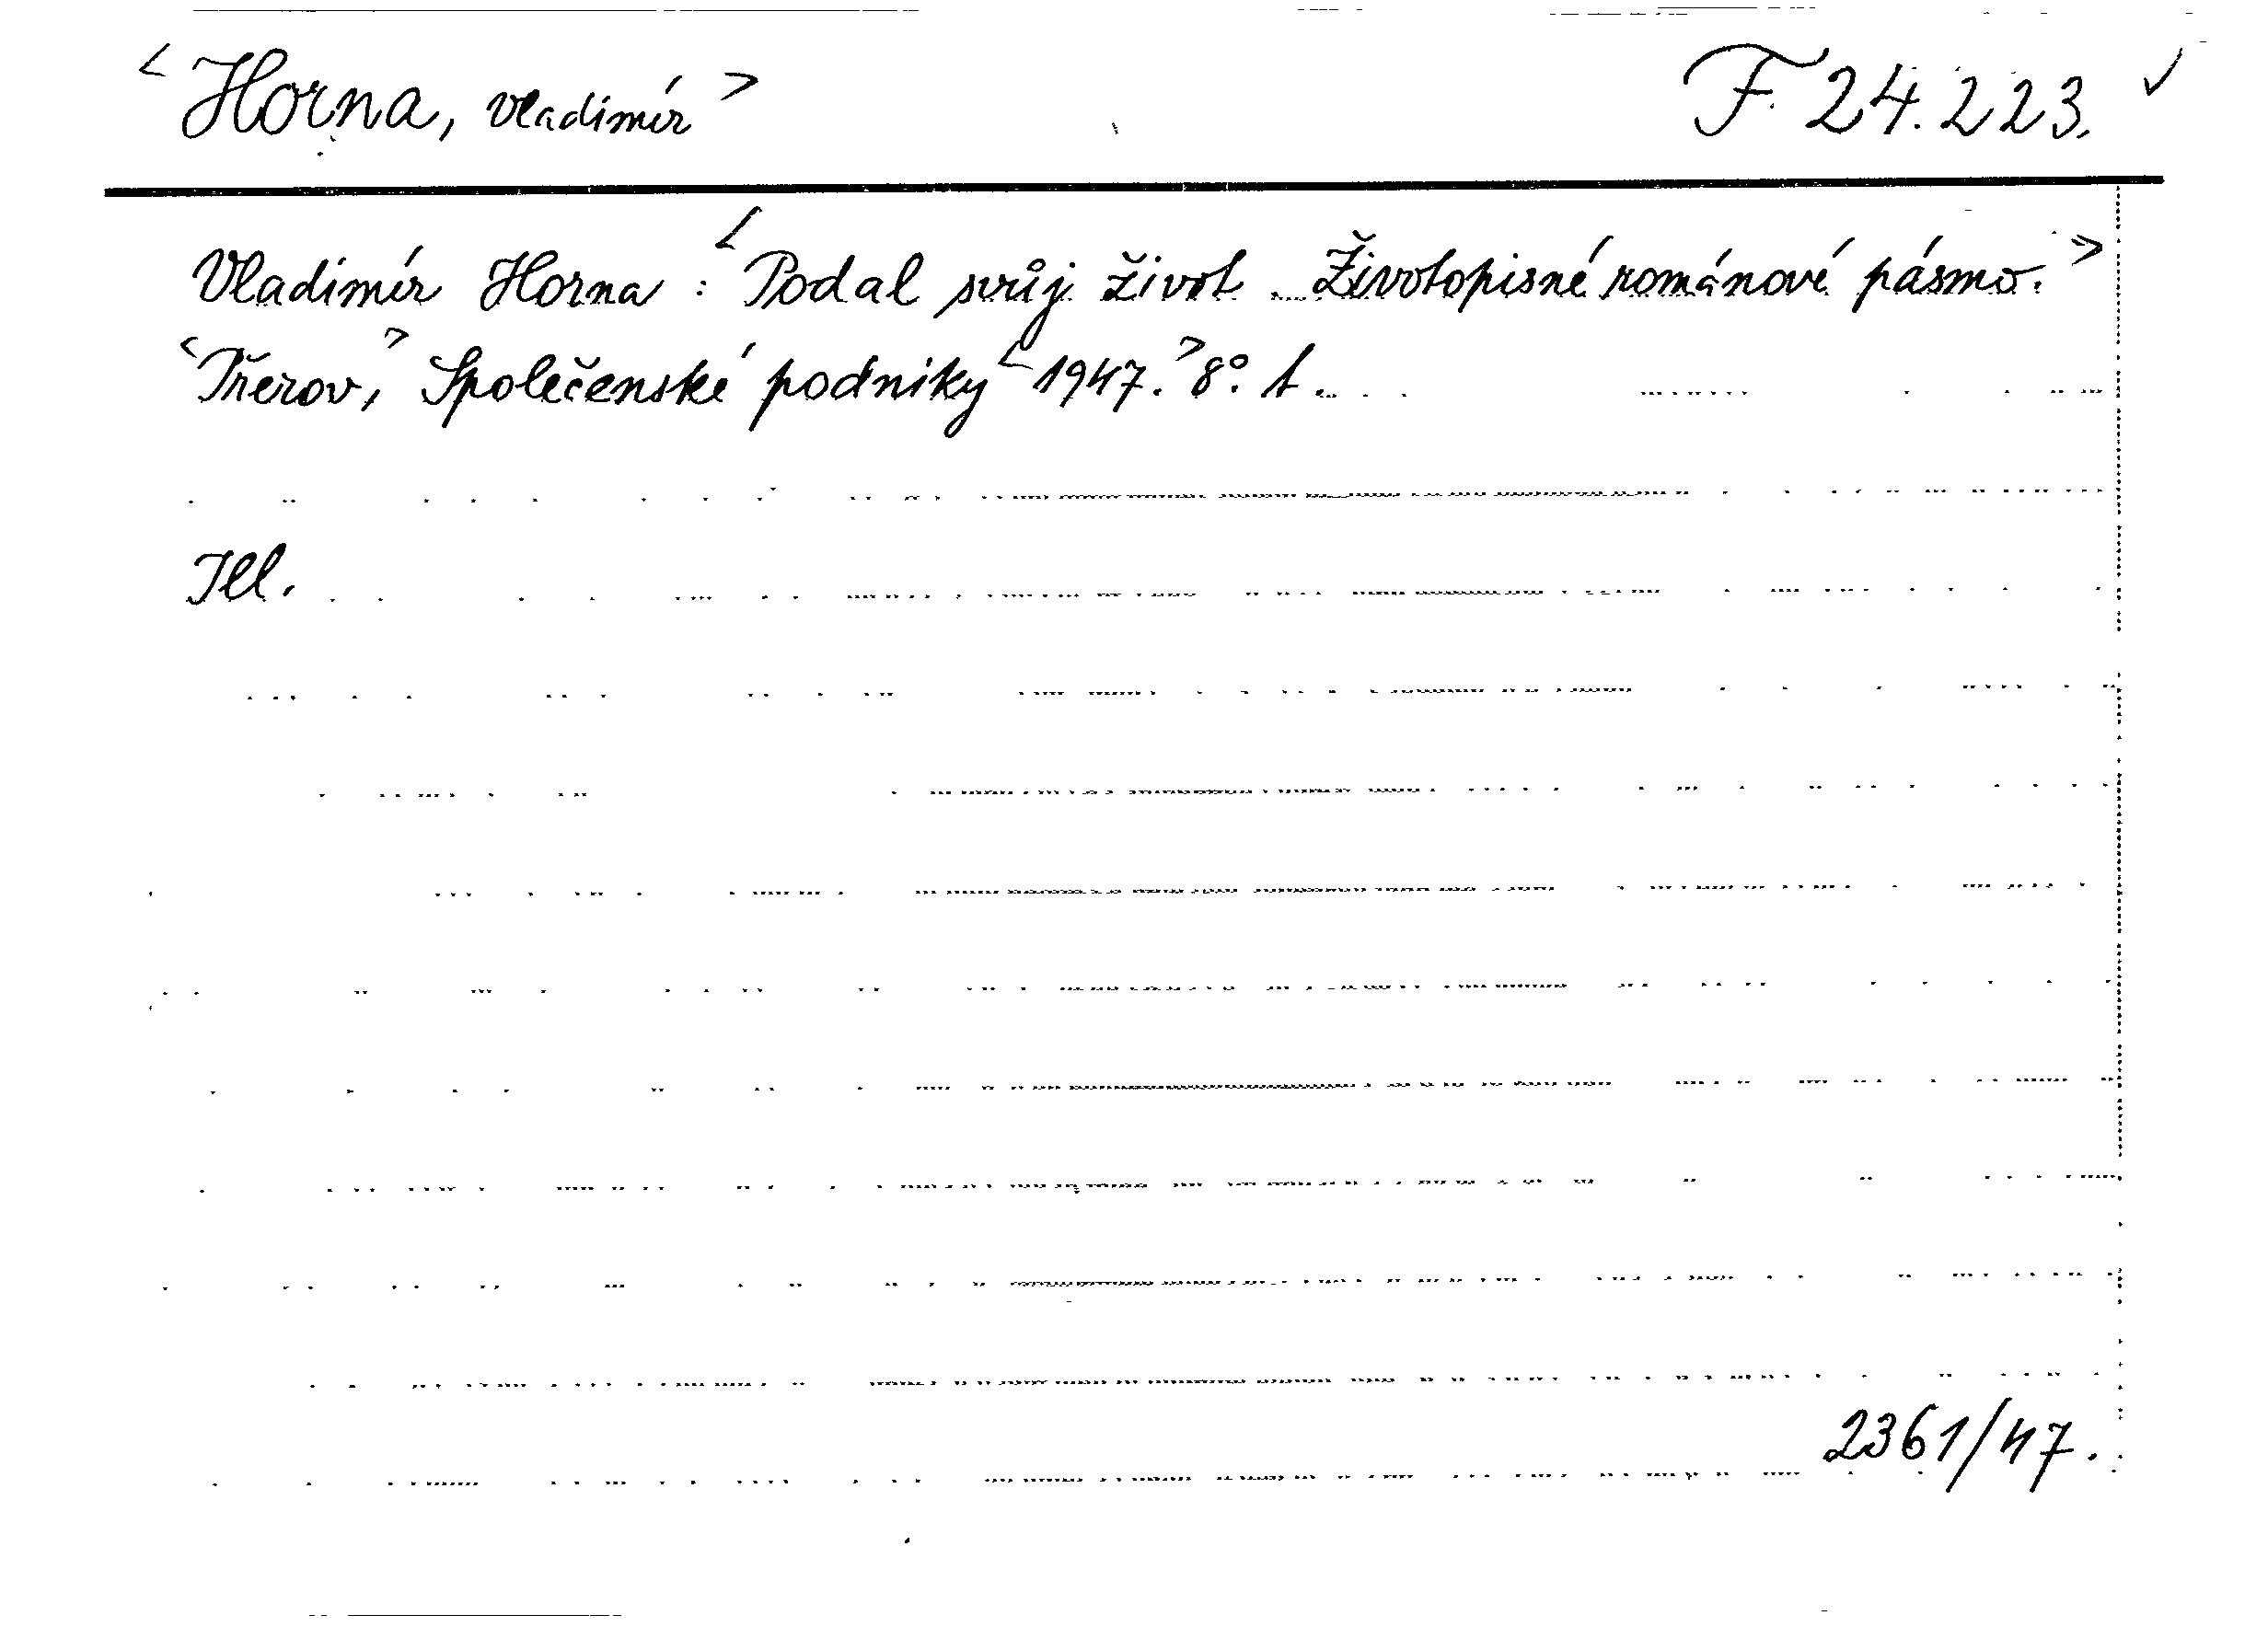 <Horna, Vladimír> F 24.223. ✓
Vladimír Horna : <Podal svůj život. Životopisné románové pásmo.>
<Přerov,> Společenské podniky <1947.> 8°. 1.
Ill.
2361/47.